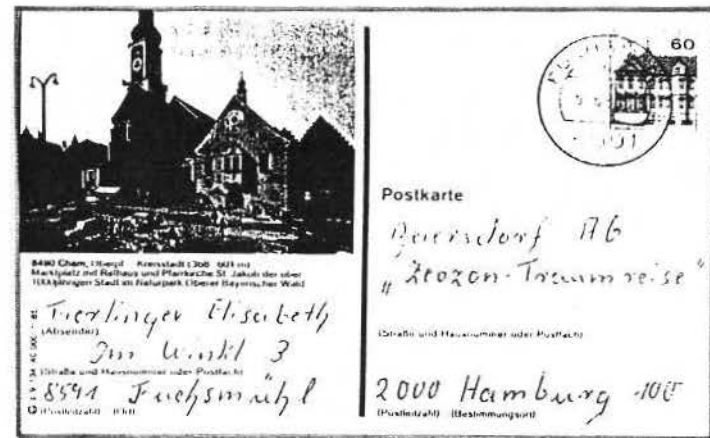 8490 Cham, Oberpf. Kreisstadt (368-601 m)
Marktplatz mit Rathaus und Pfarrkirche St. Jakob der über
1000jährigen Stadt im Naturpark Oberer Bayerischer Wald
Fierlinger Elisabeth
(Absender)
Im Winkl 3
(Straße und Hausnummer oder Postfach)
8591 Fuchsmühl
(Postleitzahl) (Ort)
60
Postkarte
Beiersdorf AG
"Zeozon-Traumreise"
(Straße und Hausnummer oder Postfach)
2000 Hamburg
(Postleitzahl) (Bestimmungsort)